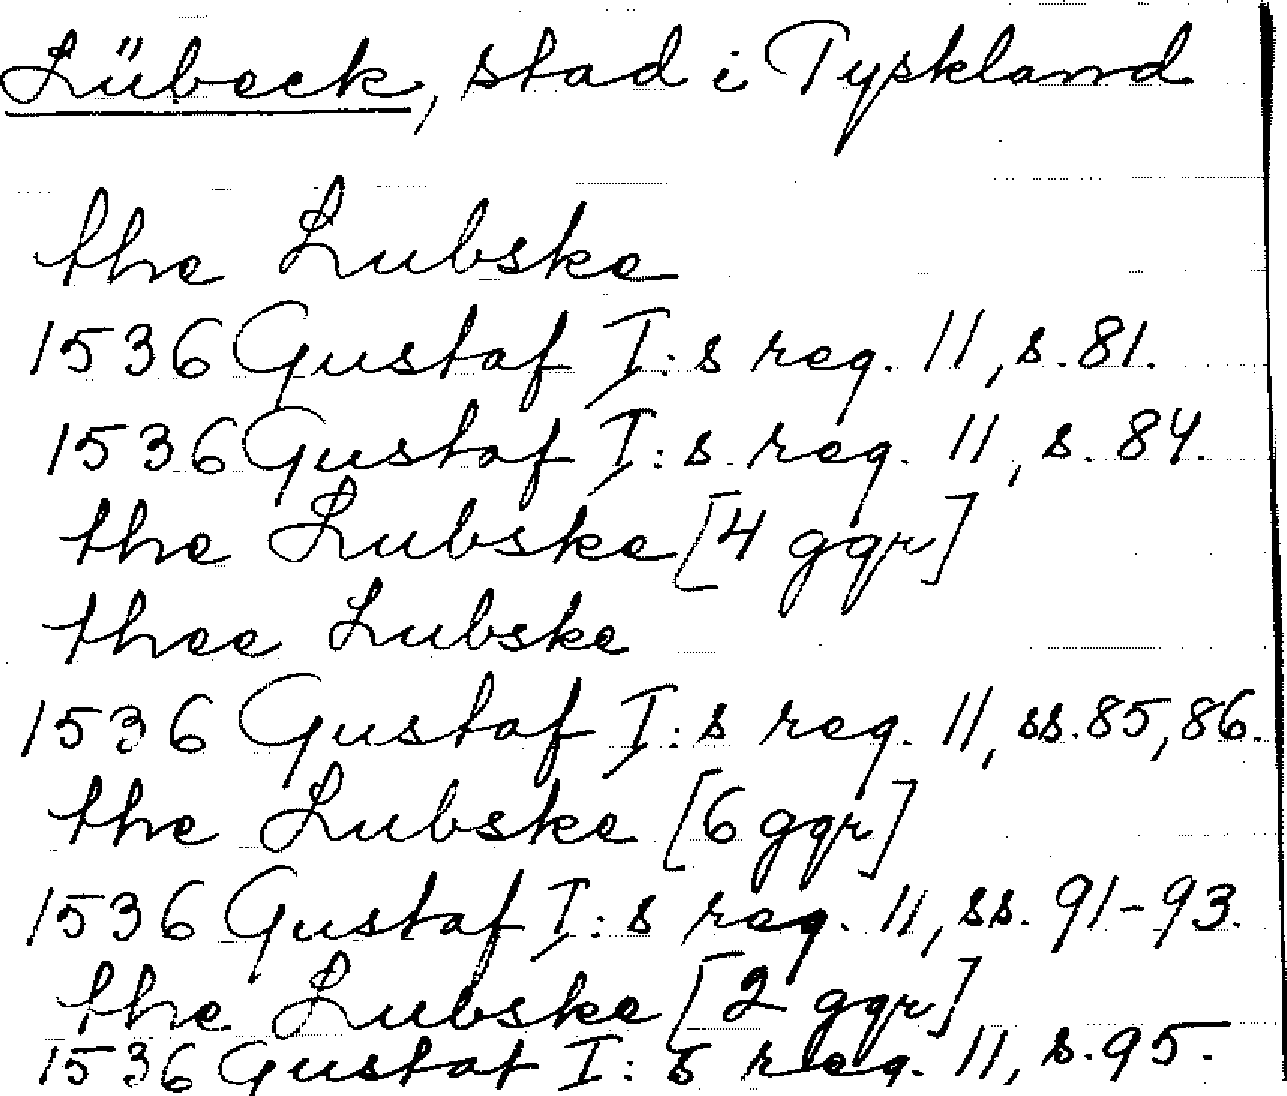 Lübeck, stad i Tyskland
the Lubske
1536 Gustaf I:s reg. 11, s. 81.
1536 Gustaf I:s reg. 11, s. 84.
the Lubske [4 ggr]
thee Lubske
1536 Gustaf I:s reg. 11, ss. 85, 86.
the Lubske [6 ggr]
1536 Gustaf I:s reg. 11, ss. 91-93.
the Lubske [2 ggr]
1536 Gustaf I:s reg. 11, s. 95.